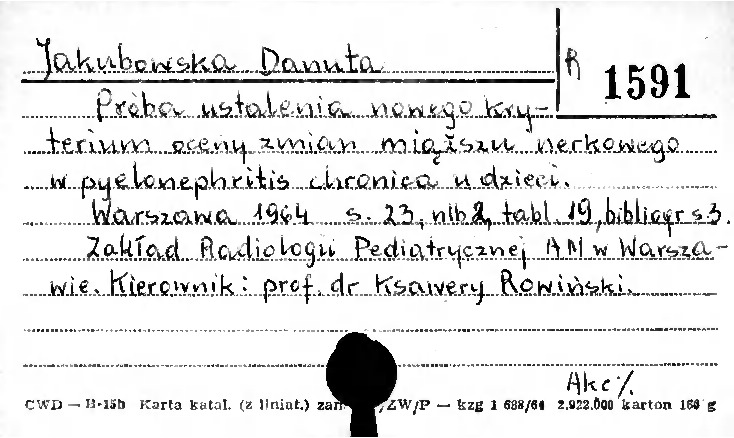 Jakubowska Danuta
R 1591
Próba ustalenia nowego kry-
terium oceny zmian miąższu nerkowego
w pyelonephritis chronica u dzieci.
Warszawa 1964 s. 23, nlb 2, tabl. 19, bibliogr s 3.
Zakład Radiologii Pediatrycznej AM w Warsza-
wie. Kierownik: prof. dr Ksawery Rowiński.
Akc %
CWD — H-15b Karta katal. (z liniat.) zam /ZW/P — kzg 1 688/64 2.922.000 karton 160 g